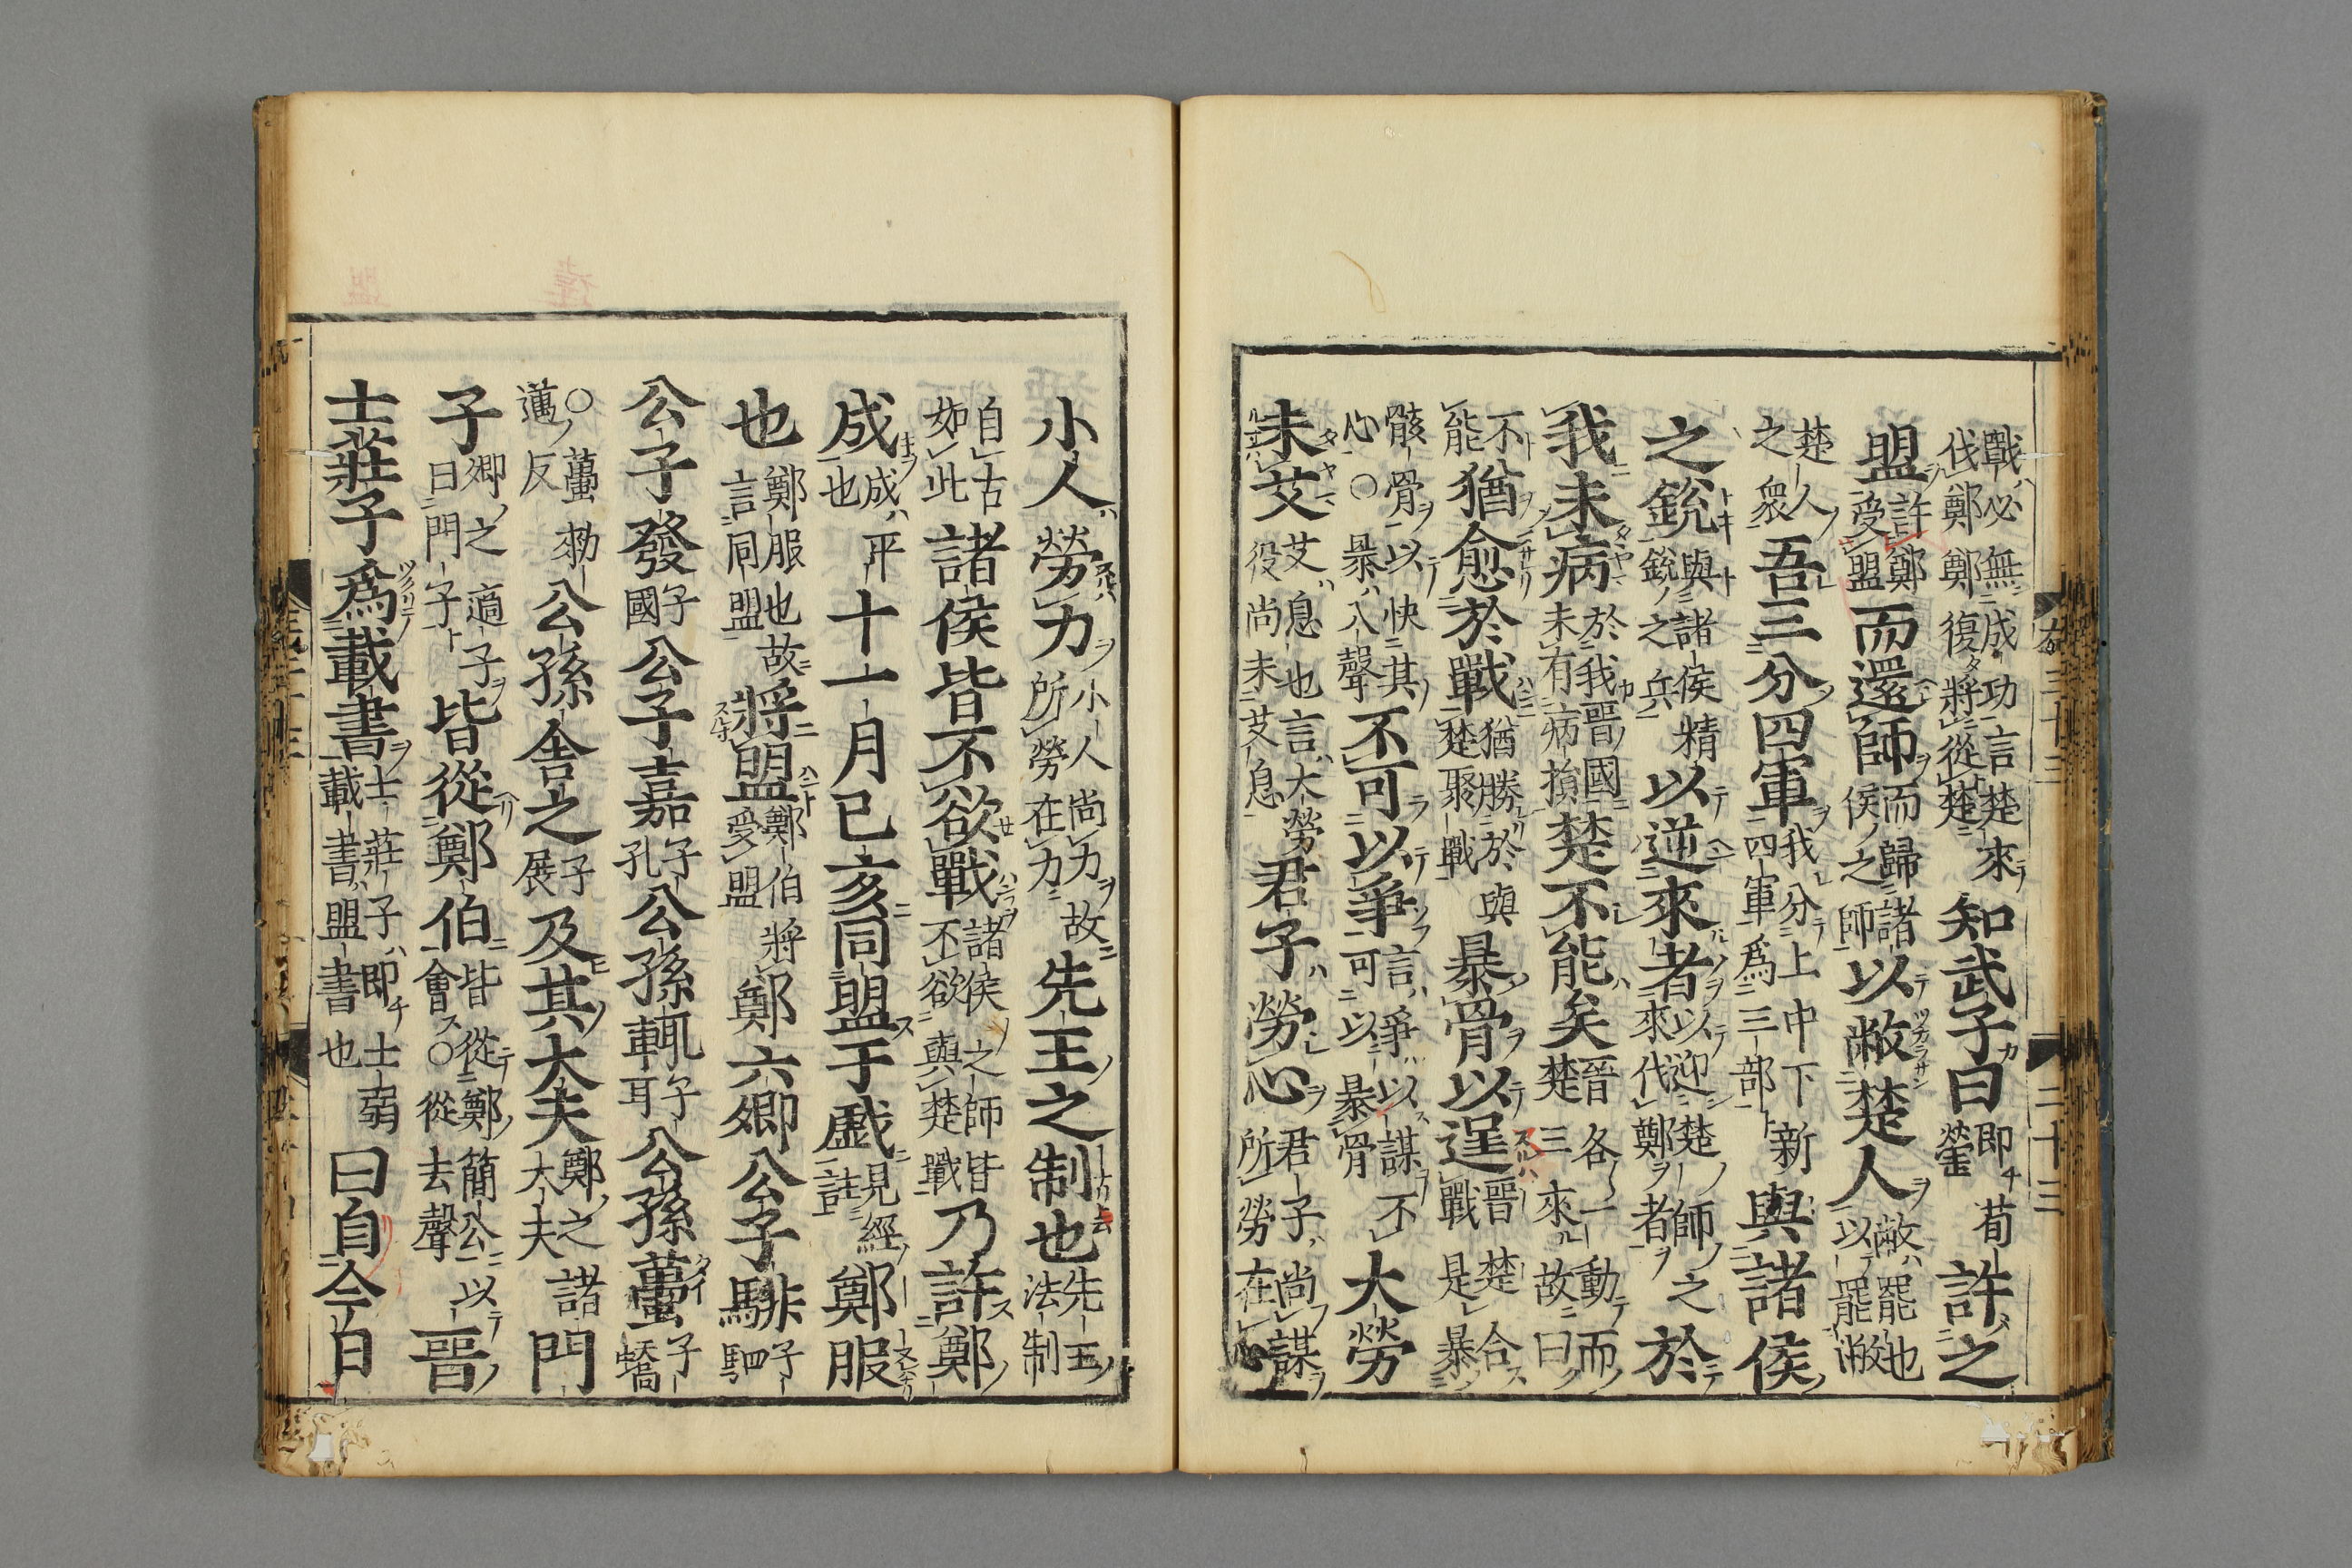 戰必無成功言楚來
伐鄭鄭復將從楚
知武子曰
即荀
罃
許之
盟
許鄭
受盟
而還師
而歸諸
侯之師
以敝楚人
敝罷也
以罷敝
楚人
之衆
吾三分四軍
我分上中下新
四軍爲三部
與諸侯
之銳
與諸侯精
銳之兵
以逆來者
來以迎楚師之
代鄭者
於
我未病
於我晋國
未有病損
楚不能矣
晉各一動而
楚三來故曰
不
能
猶愈於戰
猶勝於與
楚聚戰
暴骨以逞
晉楚合
戰是暴
骸骨以快其
心○暴八聲
不可以爭
言爭以謀不
可以暴骨
大勞
未艾
艾息也言大勞
役尚未艾息
君子勞心
君子尚謀
所勞在心
小人勞力
小人尚力故
所勞在力
先王之制也
先王
法制
自古
如此
諸侯皆不欲戰
諸侯之師皆
不欲與楚戰
乃許鄭
成
成平
也
十一月己亥同盟于戲
見經
註
鄭服
也
鄭服也故
言同盟
將盟
鄭伯將
受盟
鄭六卿公子騑
子
駟
公子發
子
國
公子嘉
子
孔
公孫輒
子
耳
公孫蠆
子
蟜
○蠆勑
邁反
公孫舍之
子
展
及其大夫
鄭之諸
大夫
門
子
卿之適子
曰門子
皆從鄭伯
皆從鄭簡公以
會○從去聲
晉
士莊子爲載書
士莊子即士弱
載書盟書也
曰自今日
二十三